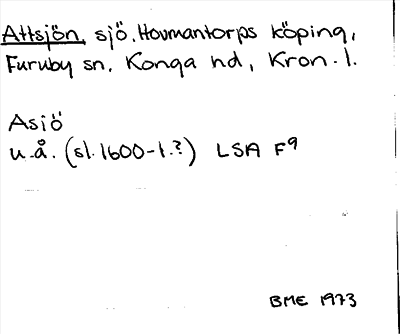 Attsjön, sjö, Hovmantorps köping,
Furuby sn, Konga hd, Kron. l.
Asiö
u.å. (sl. 1600-t.?) LSA F9
BME 1973